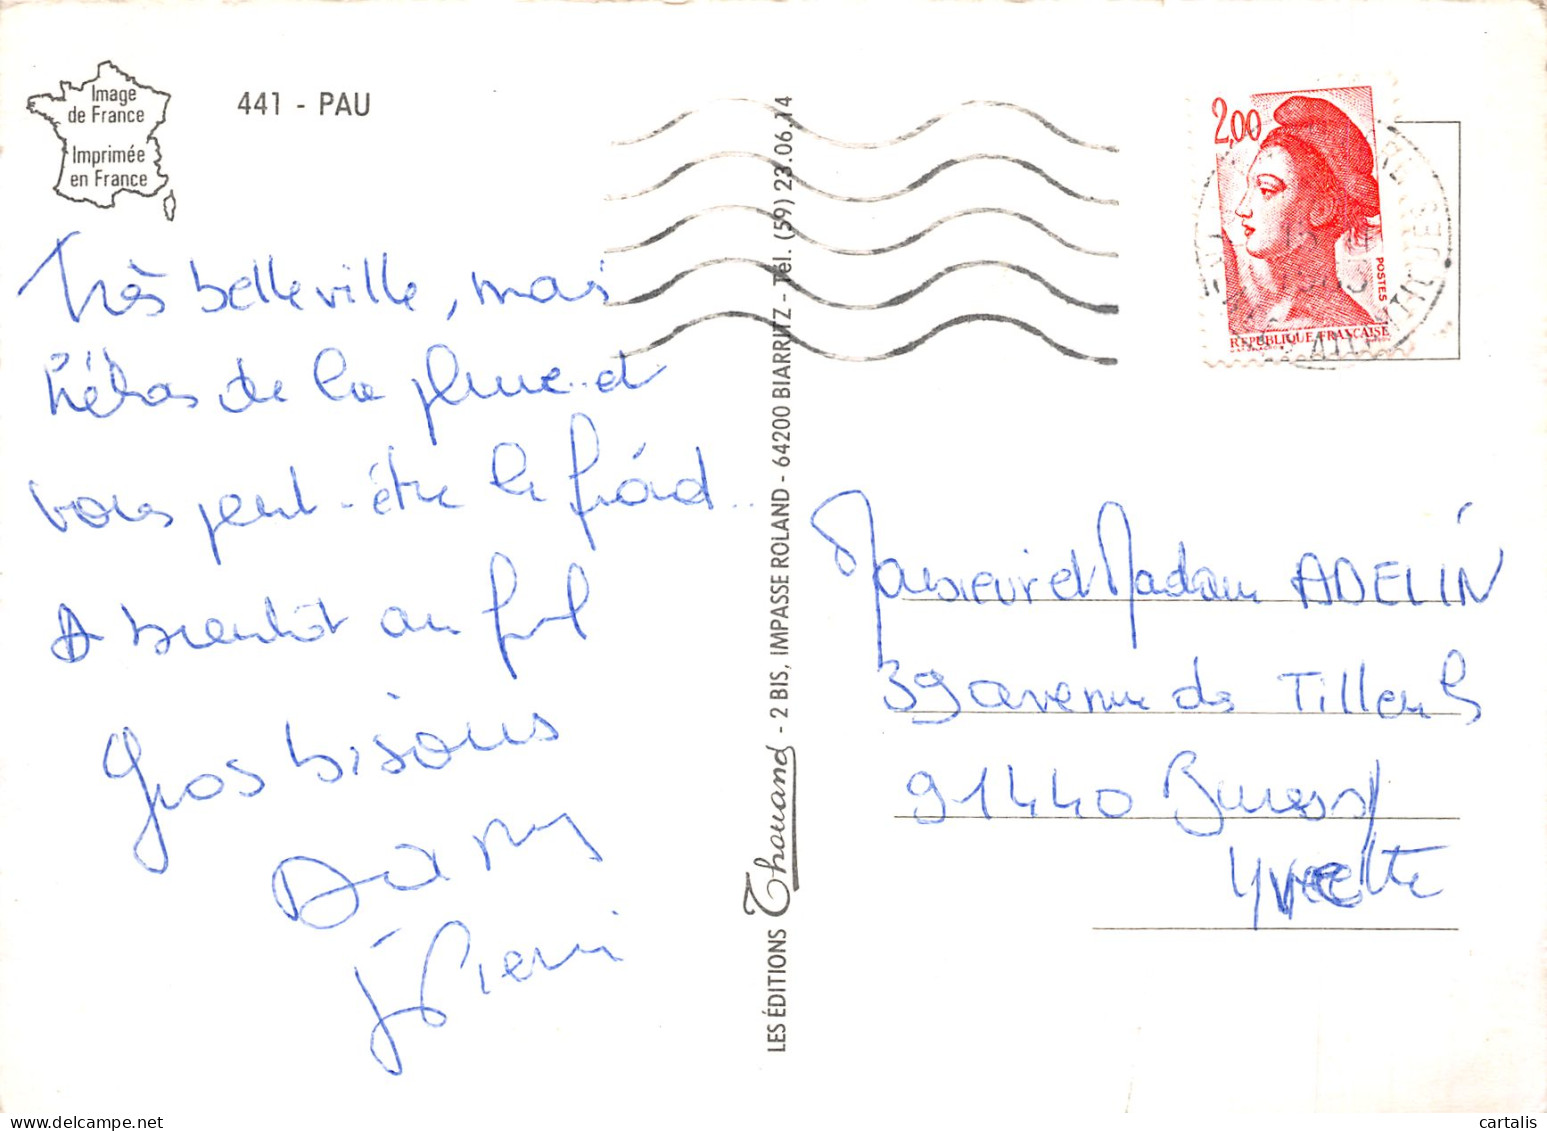 Image
de France
Imprimée
en France
441 - PAU
Très belle ville, mais
hélas de la pluie.. et
vous peut-être le froid...
A bientôt au fil
Gros bisous
J. Pierre
LES ÉDITIONS Thouand - 2 BIS, IMPASSE ROLAND - 64200 BIARRITZ - Tél. (59) 23.06.14
2,00
POSTES
REPUBLIQUE FRANÇAISE
Monsieur et Madame ADELIN
39 avenue des Tilleuls
91440 Bures s/
Yvette
cartalis